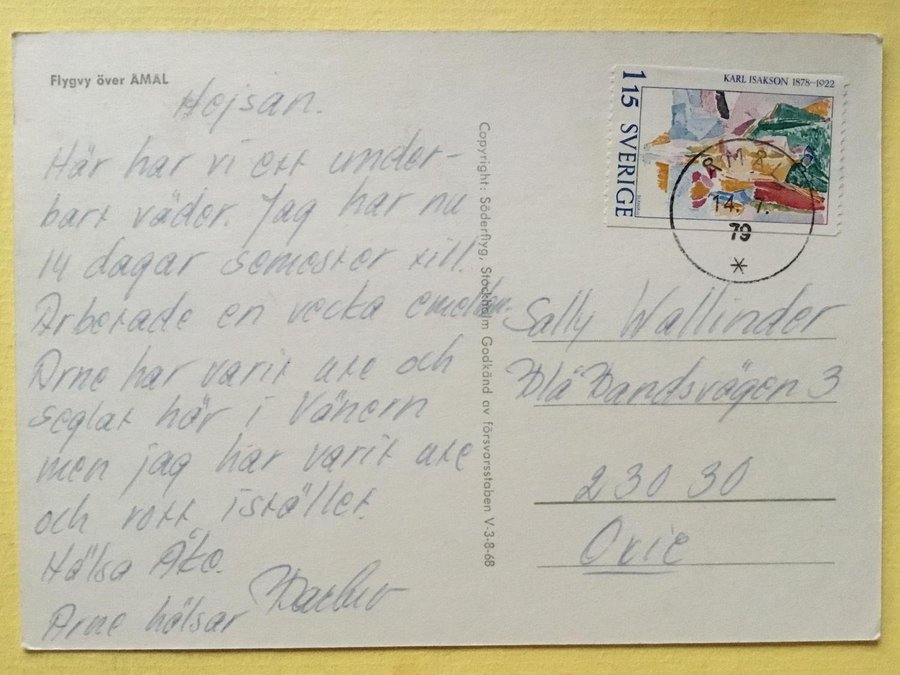 Flygvy över ÅMÅL
Hejsan.
Här har vi ett under-
bart väder. Jag har nu
14 dagar semester till.
Arbetade en vecka emellan.
Arne har varit ute och
seglat här i Vänern
men jag har varit ute
och rott istället.
Hälsa Åke.
Arne hälsar Barbro
Copyright: Söderflyg, Stockholm Godkänd av försvarsstaben V-3-8-68
KARL ISAKSON 1878-1922
115 SVERIGE
14. 7.
79
Sally Wallinder
Blå Bandsvägen 3
230 30
Oxie